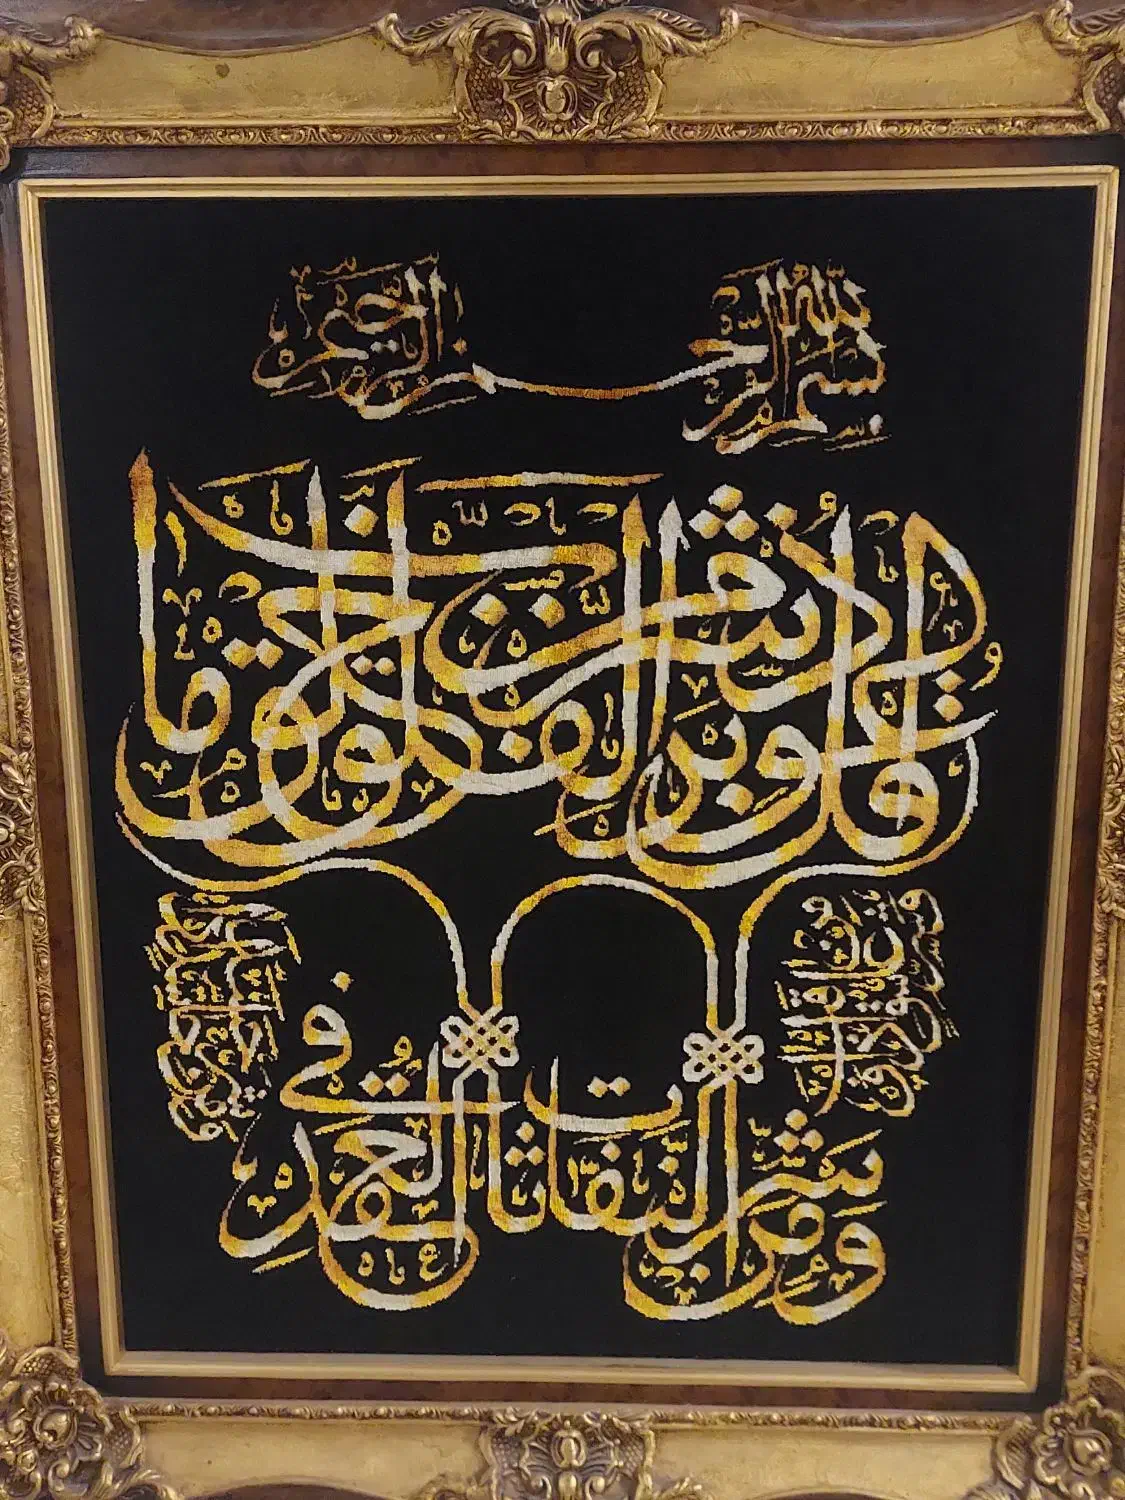 بِسْمِ اللَّهِ الرَّحْمَٰنِ الرَّحِيمِ
قُلْ أَعُوذُ بِرَبِّ الْفَلَقِ مِنْ شَرِّ مَا خَلَقَ
وَمِنْ شَرِّ غَاسِقٍ إِذَا وَقَبَ
وَمِنْ شَرِّ النَّفَّاثَاتِ فِي الْعُقَدِ